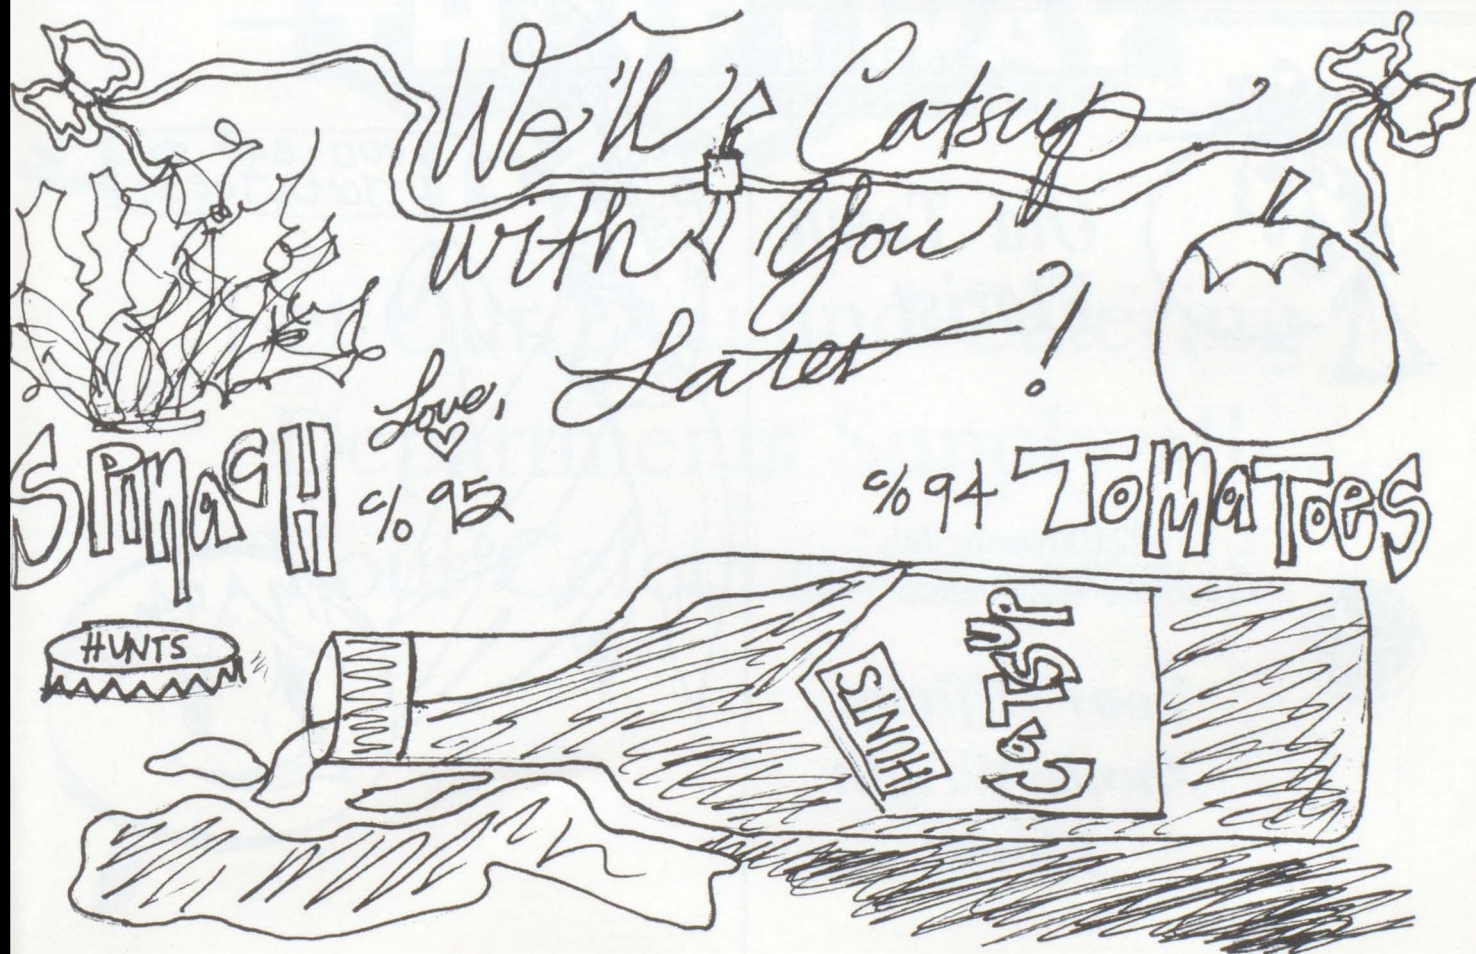 We'll Catsup
with You
Later!
Love,
SPinacH c/o 95
c/o 94 ToMaToes
HUNTS
HUNTS
CaTSUP